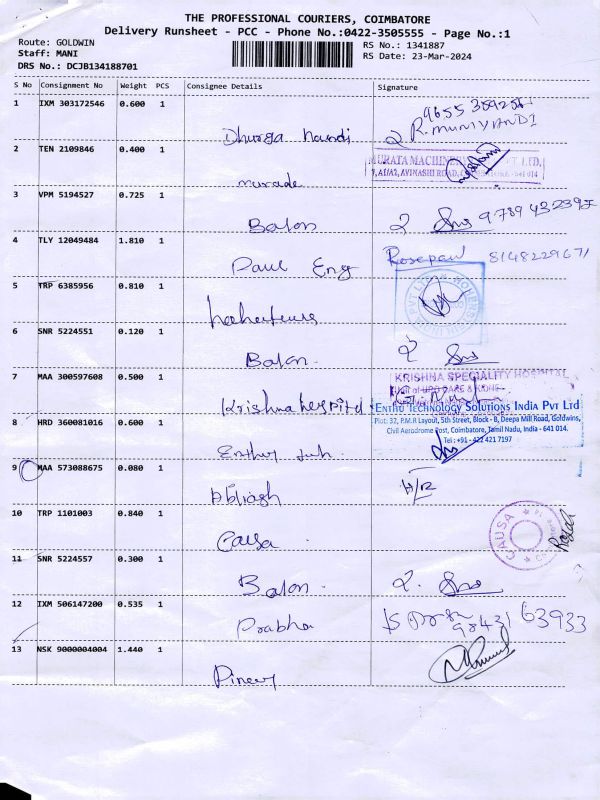 THE PROFESSIONAL COURIERS, COIMBATORE
Delivery Runsheet - PCC - Phone No.:0422-3505555 - Page No.:1
Route: GOLDWIN
Staff: MANI
DRS No.: DCJB134188701
RS No.: 1341887
RS Date: 23-Mar-2024
S No Consignment No Weight PCS Consignee Details Signature
1 IXM 303172546 0.600 1
Dhurga nandi
R. MUNIYANDI
2 TEN 2109846 0.400 1
MURATA MACHINE LTD.
AVINASHI ROAD, 641 014
murade
3 VPM 5194527 0.725 1
Balon 9789432395
4 TLY 12049484 1.810 1
Paul Eng Rosepaul 8148229671
5 TRP 6385956 0.810 1
6 SNR 5224551 0.120 1
Balon
7 MAA 300597608 0.500 1
KRISHNA SPECIALITY HOSPITAL
Krishna hospital
8 HRD 360081016 0.600 1
ENTHU TECHNOLOGY SOLUTIONS INDIA PVT LTD
Plot: 37, P.M.R Layout, 5th Street, Block - B, Deepa Mill Road, Goldwins,
Civil Aerodrome Post, Coimbatore, Tamil Nadu, India - 641 014.
Tel : +91 - 422 421 7197
Enthu Tech
9 MAA 573088675 0.080 1
10 TRP 1101003 0.840 1
Causa
CAUSA
11 SNR 5224557 0.300 1
Balon
12 IXM 506147200 0.535 1
Prabha 98431 63933
13 NSK 9000004004 1.440 1